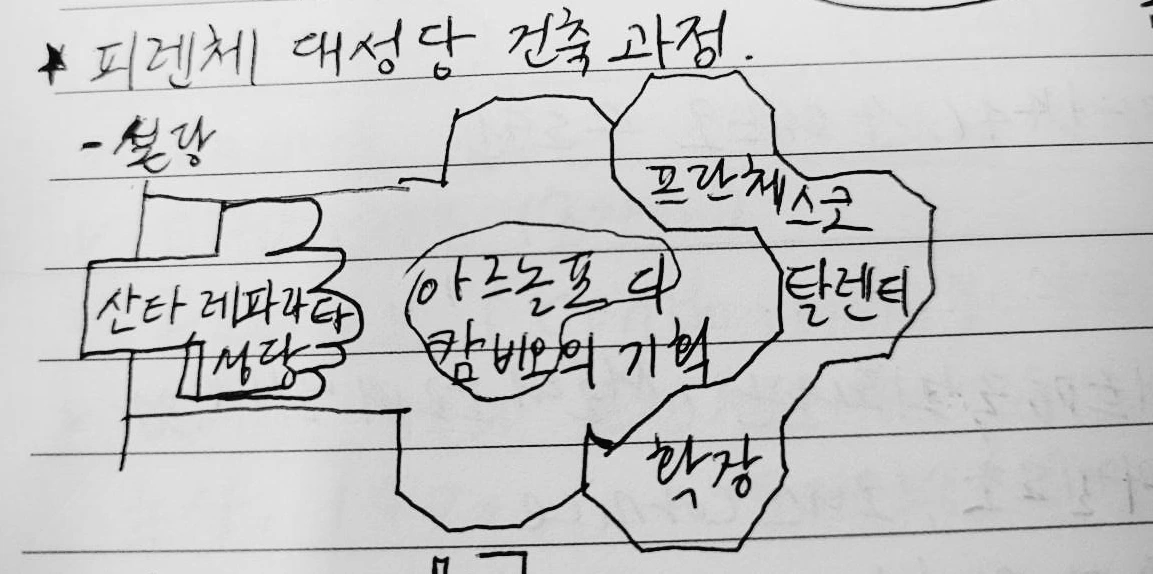 ★ 피렌체 대성당 건축과정.
- 본당
프란체스코
탈렌티
확장
아르놀포 디
캄비오의 기획
산타 레파라타
성당